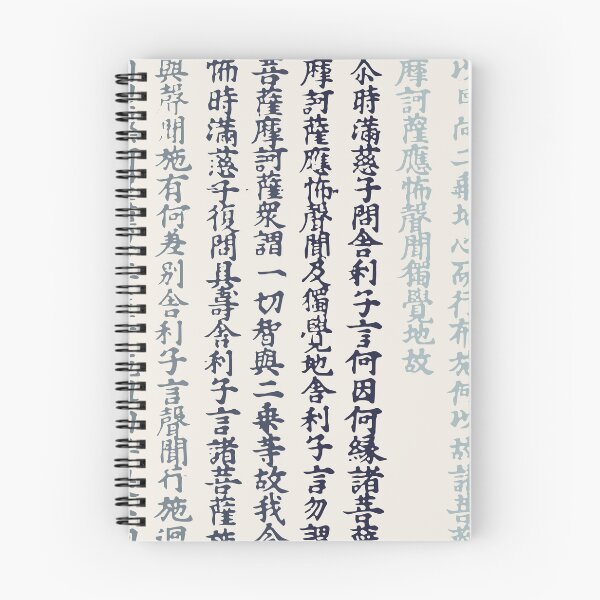 以回向二乘地心而行布施何以故諸菩薩
摩訶薩應怖聲聞獨覺地故
尒時滿慈子問舍利子言何因何緣諸菩薩
摩訶薩應怖聲聞及獨覺地舍利子言勿謂
菩薩摩訶薩眾謂一切智與二乘等故我今
怖時滿慈子復問具壽舍利子言諸菩薩施
與聲聞施有何差別舍利子言聲聞行施迴